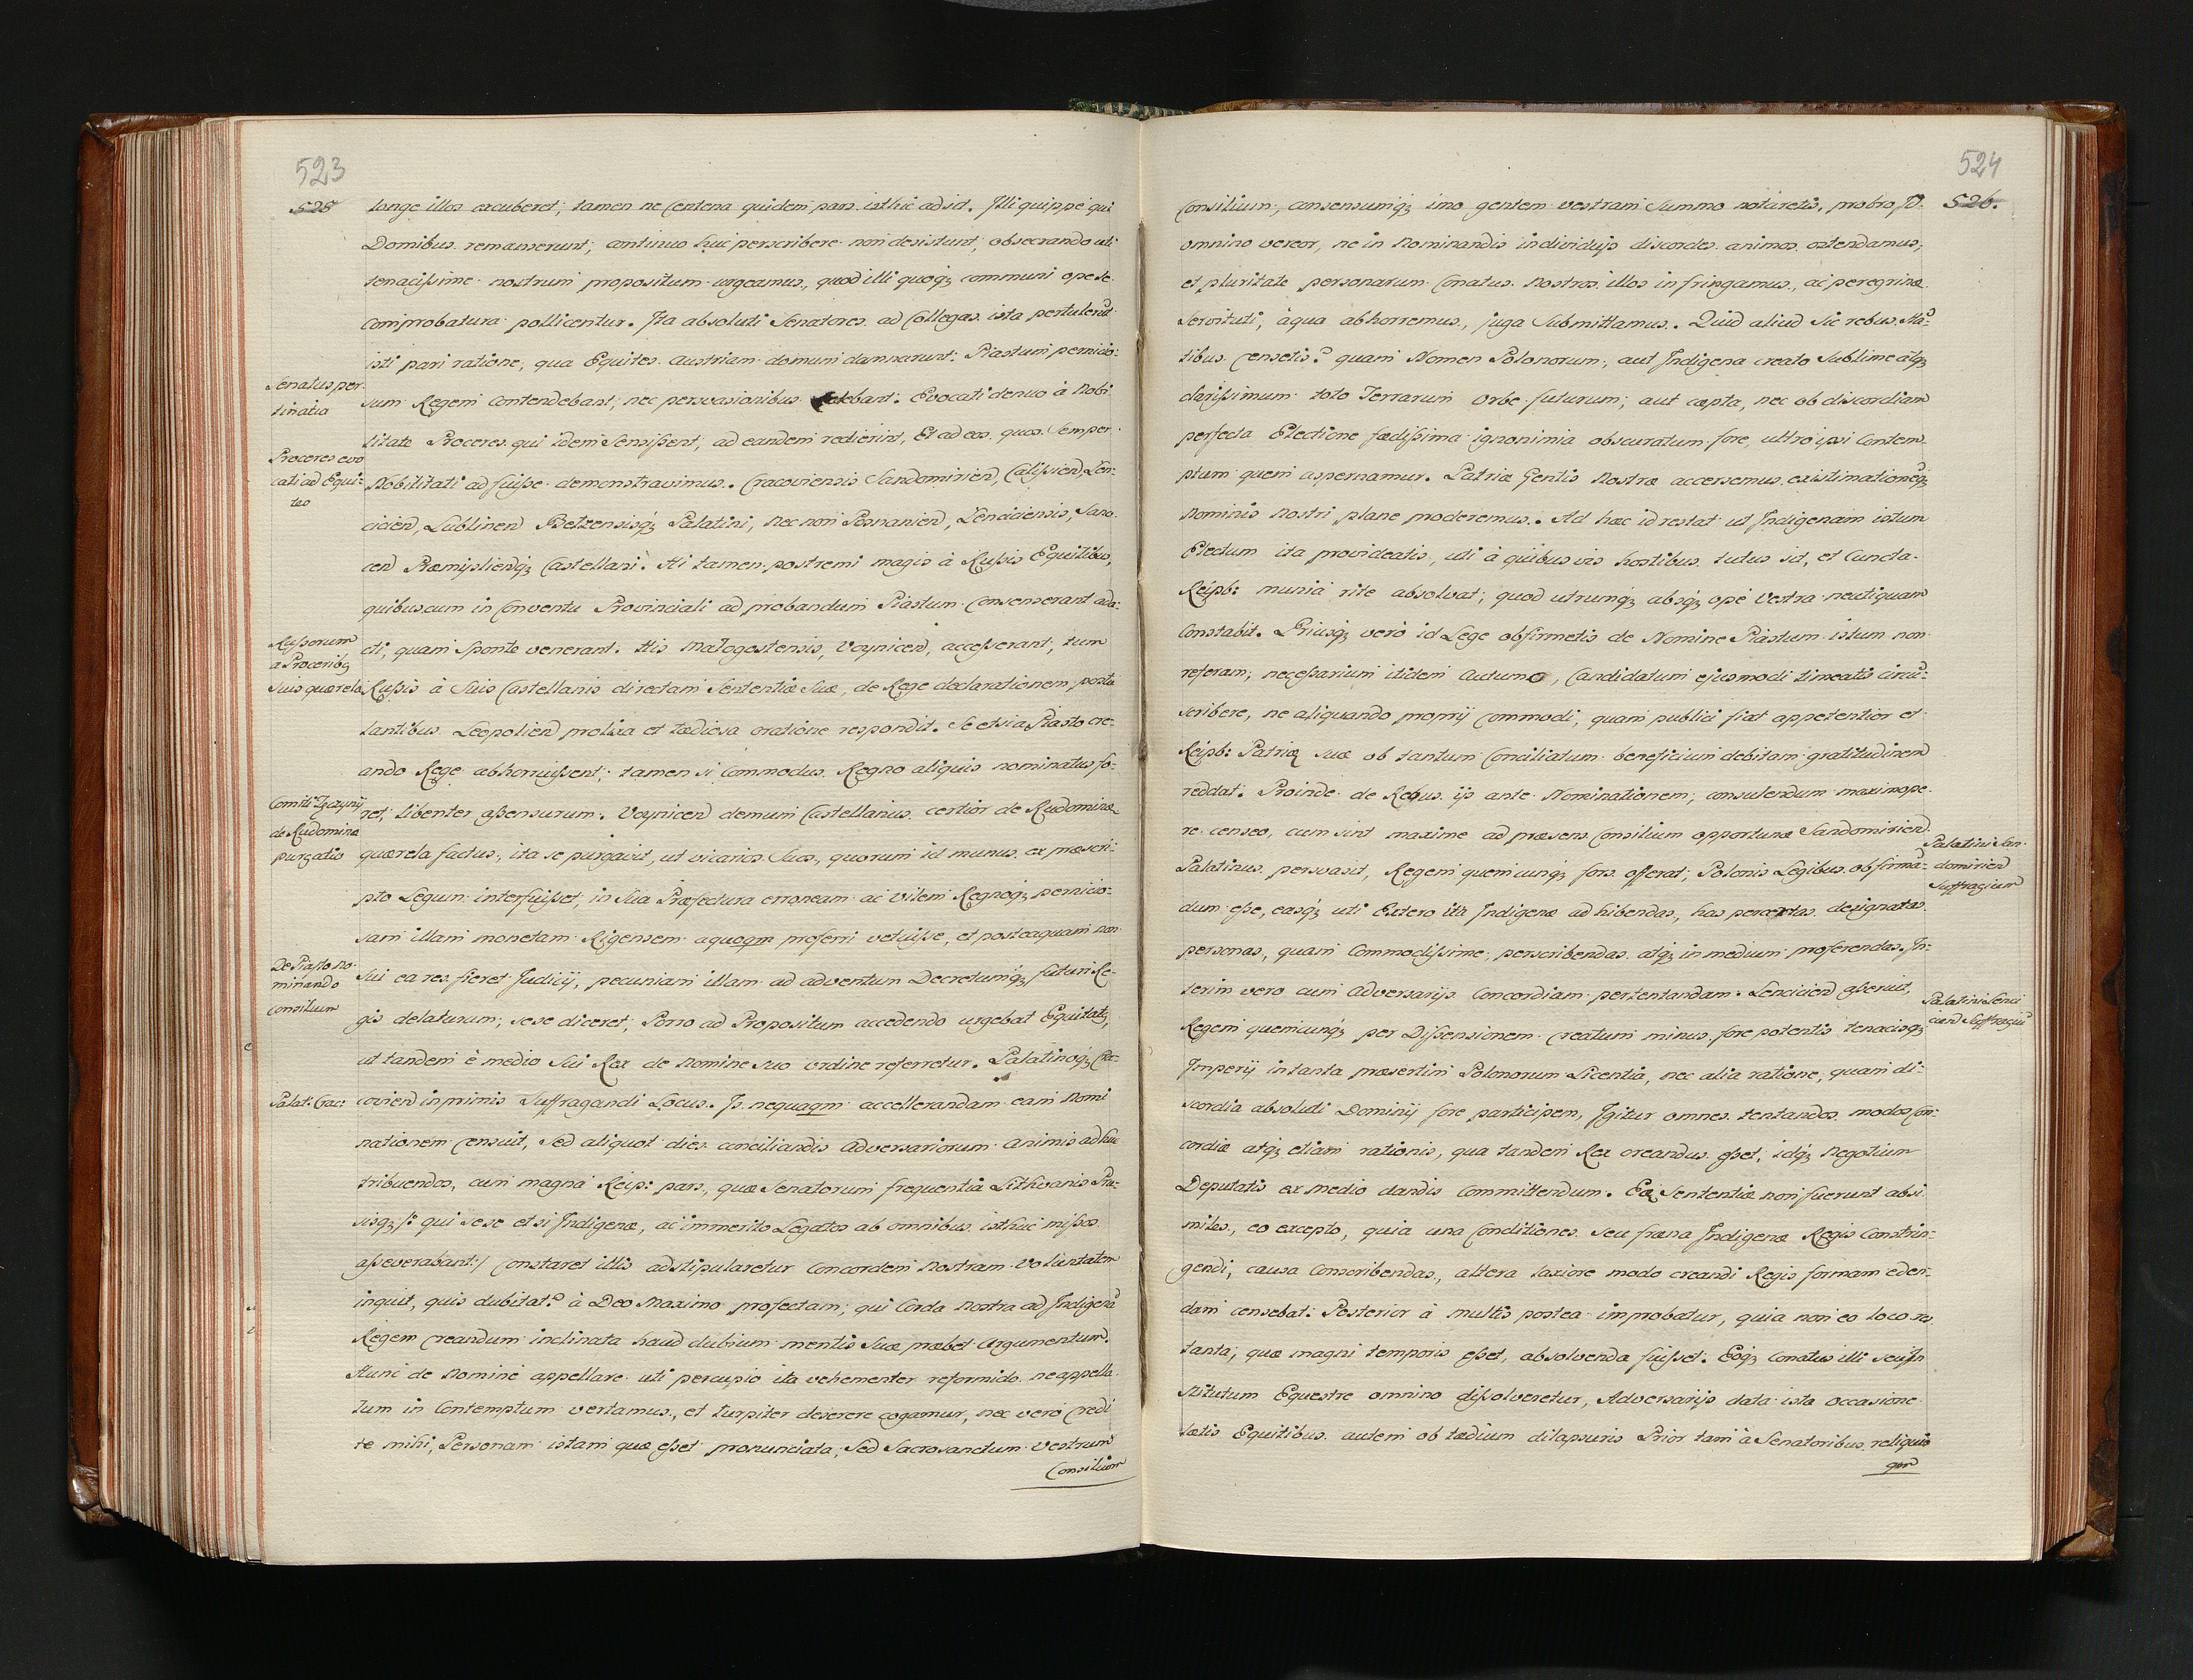 523
525
longe illos excuberet; tamen ne Centena quidem pars isthic adsit. Illi quippe qui
Domibus remanserunt, continuo huc perscribere non desistunt, obsecrando uti
tenacissime nostrum propositum urgeamus, quod illi quoq; communi ope se
comprobatura pollicentur. Ita absoluti Senatores ad Collegas ista pertulerūt
isti pari ratione, qua Equites Austriam domum damnarunt: Piastum pernicio=
Senatus per
tinatia
sum Regem Contendebant, nec persvasionibus debant. Evocati denuo à Nobi
Proceres evo
cati ad Equi=
tes
litate Proceres qui idem Sensissent, ad eandem redierint, Et ad eos quos Semper
Nobilitati adfuisse demonstravimus. Cracoviensis Sandomirien, Calissien, Len=
cicien, Lublinen Belzensisq; Palatini, nec non Posnanien, Lenciciensis, Sano
cen Præmislienq; Castellani. Hi tamen postremi magis à Russis Equitibus,
quibuscum in Conventu Provinciali ad probandum Piastum Consenserant ada=
Russorum
a Procerib9
suis quærela
cti, quam Sponte venerant. His Malogostensis, Voynicen, accesserant, tum
Russis à Suis Castellanis directam Sententiæ Suæ, de Rege declarationem posta
lantibus Leopolien prolixa et tædiosa oratione respondit. Se etsi a Piasto cre=
ando Rege abhorruissent; tamen si Commodus Regno aliquis nominatus fo=
Comiti Tęczynij
de Rudomina
purgatio
ret, libenter assensurum. Voynicen demum Castellanus certior de Rudominæ
quærela factus, ita se purgavit, ut vicarios Suos, quorum id munus ex præscri=
pto Legum interfuisset, in Sua Præfectura erroneam ac vilem Regnoq; pernicio=
sam illam monetam Rigensem aquoqm proferri vetuisse, et posteaquam non
De Piasto no=
minando
consilium
Sui ea res fieret Judicij, pecuniam illam ad adventum Decretumq; futuri Re=
gis delaturum, sese diceret, Porro ad Propositum accedendo urgebat Equitatq,
ut tandem è medio Sui Rex de Nomine suo ordine referretur. Palatinoq; Cra=
Palat: Crac:
covien inprimis Suffragandi Locus. Is nequaqm accellerandam eam Nomi
nationem censuit, Sed aliquot dies conciliandis Adversariorum animis adhuc
tribuendos, cum magna Reip: pars, quæ Senatorum frequentia Lithvanis Pru=
sisq; /: qui sese etsi Indigenæ, ac immerito Legatos ab omnibus isthuc missos
asseverabant:/ Constaret illis adstipularetur Concordem Nostram Voluntatem
inquit, quis dubitat? à Deo Maximo profectam, qui Corda Nostra ad Indigenā
Regem Creandum inclinata haud dubium mentis Suæ præbet argumentum.
Hunc de Nomine appellare uti percupio ita vehementer reformido ne appella
tum in Contemptum vertamus, et turpiter deserere cogamur, nec vero Credi
te mihi, Personam istam quæ esset pronunciata, Sed Sacrosanctum Vestrum
Consilium
524
526.
Consilium, consensumq; imo gentem vestram Summo notaretis, probro
omnino vereor, ne in Nominandis individuis discordes animos ostendamus,
et pluritate personarum Conatus Nostros illos infringamus, ac peregrinæ
Servituti, à qua abhorremus, juga Submittamus. Quid aliud Sic rebus Stā=
tibus Censetis? quam Nomen Polonorum, aut Indigena creato Sublime atq;
clarissimum toto Terrarum Orbe futurum; aut cæpta, nec ob discordiam
perfecta Electione fædissima ignonimia obscuratum fore, ultro ipsi Contem
ptum quem aspernamur. Patriæ Gentis Nostræ accersemus existimationeq;
Nominis Nostri plane proderemus. Ad hæc id restat ut Indigenam istum
Electum ita provideatis, uti à quibusvis hostibus tutus sit, et Cuncta
Reipb: munia rite absolvat; quod utrumq; absq; ope Vestra neutiquam
Constabit. Priusq; vero id Lege obfirmetis de Nomine Piastum istum non
referam; necessarium itidem Autumo, Candidatum ejusmodi timeatis circū=
scribere, ne aliquando proprij Commodi, quam publici fiat appetentior et
Reipb: Patriæ suæ ob tantum Conciliatum beneficium debitam gratitudinem
reddat. Proinde de Rebus ijs ante Nominationem, consulendum maximope
re censeo, cum sint maxime ad præsens Consilium opportunæ Sandomirien
Palatini San=
domirien
Suffragium
Palatinus persvasit, Regem quemcunq; fors offerat, Polonis Legibus obfirmā=
dum esse, easq; uti Extero ità Indigenæ adhibendas, has per certas designatas
personas, quam Commodissime, perscribendas atq; in medium proferendas. In=
terim vero cum Adversarijs Concordiam pertentandam. Lencicien asseruit,
Palatini Lenci
cien Suffragiū
Regem quemcunq; per Dissensionem Creatum minus fore potentis tenacisq;
Imperij in tanta præsertim Polonorum Licentia, nec alia ratione, quam di=
scordia absoluti Dominij fore participem, Igitur omnes tentandos modos Con=
cordiæ atq; etiam rationis, qua tandem Rex creandus esset, idq; Negotium
Deputatis ex medio dandis Committendum. Eæ Sententiæ non fuerunt absi
miles, eo excepto, quia una Conditiones seu fræna Indigenæ Regis Constrin=
gendi, causa Conscribendas, altera laxiore modo creandi Regis formam eden=
dam censebat. Posterior à multis postea improbatur, quia non eo loco res
tanta, quæ magni temporis esset, absolvenda fuisset. Eoq; Conatus illi seu In
stitutum Equestre omnino dissolveretur, Adversarijs data ista occasione
lætis Equitibus autem ob tædium dilapsuris Prior tam à Senatoribus reliquis
qm